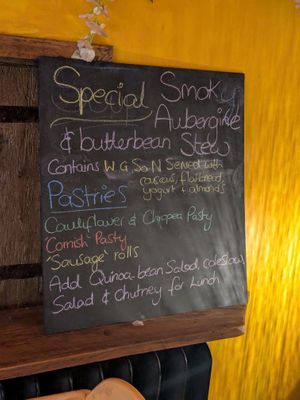 Special Smoky
Aubergine
& butterbean Stew
Contains W G So N Served with
couscous, flatbread,
yogurt & almonds
Pastries
Cauliflower & Chickpea Pasty
'Cornish' Pasty
'Sausage' rolls
Add Quinoa bean Salad, coleslaw,
Salad & Chutney for Lunch